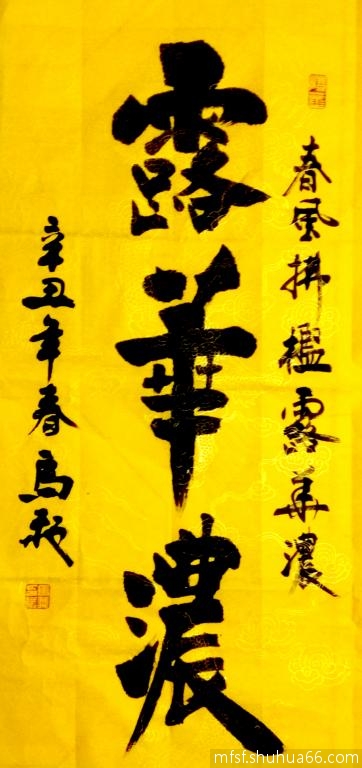 春風拂檻露華濃
露華濃
辛丑年春
mfsf.shuhua66.com